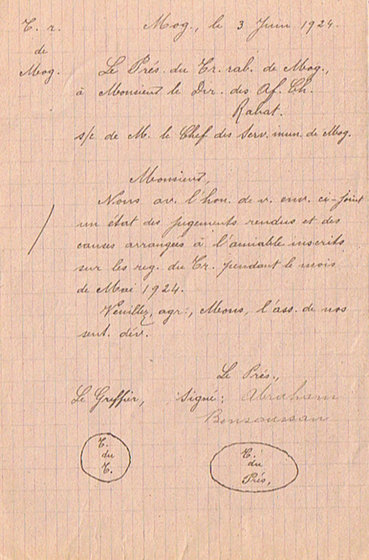 T. r.
de
Mog.
Mog., le 3 Juin 1924.
Le Prés. du Tr. rab. de Mog.,
à Monsieur le Dir. des Af. Ch.
Rabat.
s/c de M. le Chef des Serv. mun. de Mog.
Monsieur,
Nous av. l'hon. de v. env. ci-joint
un état des jugements rendus et des
causes arrangées à l'amiable inscrits
sur les reg. du Tr. pendant le mois
de Mai 1924.
Veuillez, agr., Mons, l'ass. de nos
sent. dév.
Le Prés.,
Le Greffier, Signé: Abraham
Bensoussan
T.
du
T.
T.
du
Prés.